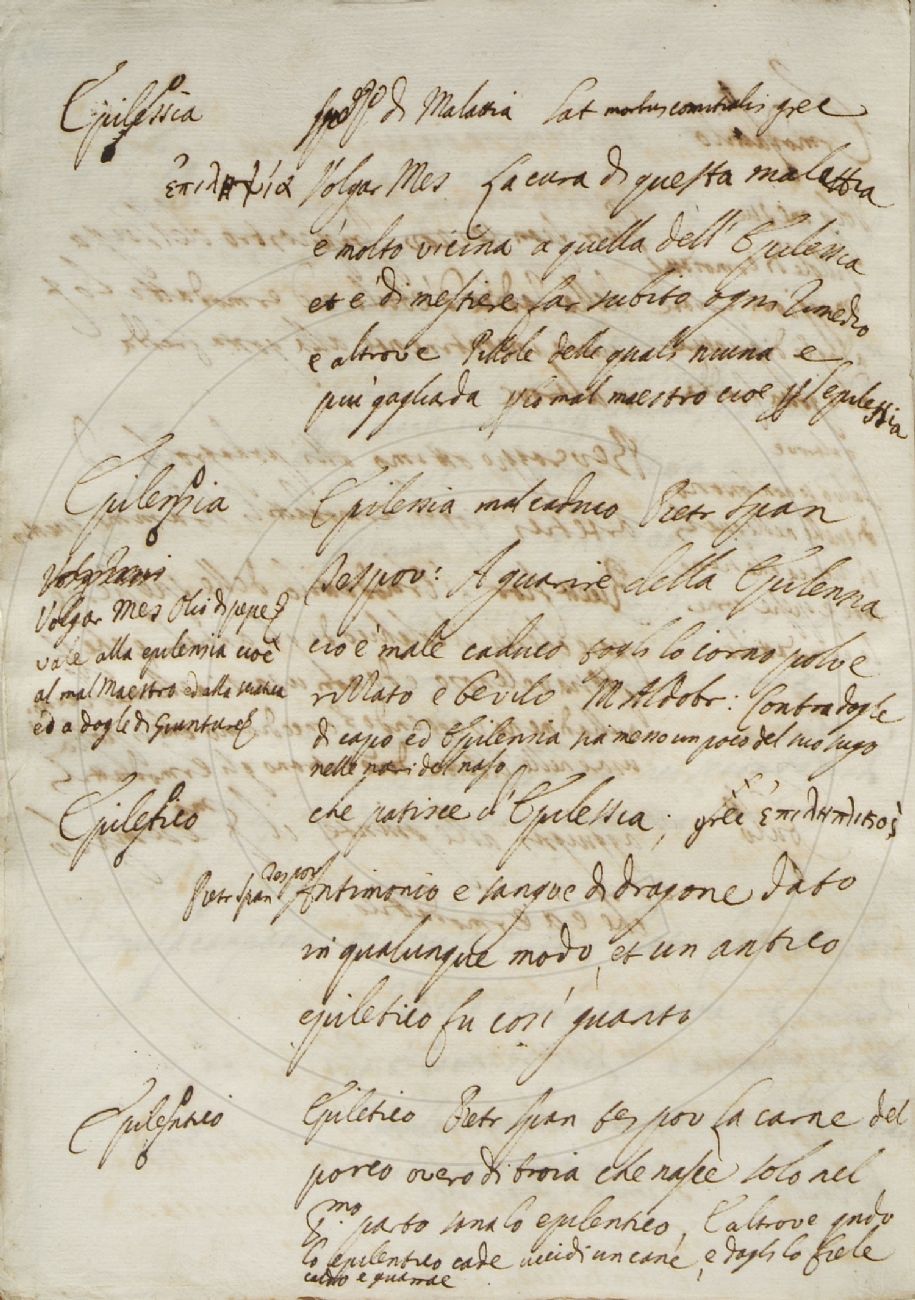 Epilessia
spezie di Malattia Lat morbus comitialis grec
ἐπιληψία Volgar Mes La cura di questa malattia
è molto vicina a quella dell' Epilensia
et è di mestiere far subito ogni rimedio
e altrove Pillole delle quali niuna è
più gagliarda mal maestro cioe l'epilessia
Epilensia
Epilensia mal caduco Pietr Span
Volgar Mes Olio di pepe
vale alla epilensia cioè
al mal Maestro ed alla sciatica
ed a dogle di Giunture
Tes pov: A guarire della Epilensia
cioè male caduco togli lo corno polve
rizzato e bevilo M Aldobr: Contra dogle
di capo ed Epilensia sia messo un poco del suo sugo
nelle nari del naso
Epiletico
che patisce d' Epilessia; grec
Pietr Span Tes pov
Antimonio e sangue di dragone dato
in qualunque modo, et un antico
epiletico fu così guarito
Epilentico
Epiletico Pietr Span tes pov La carne del
porco overo di troia che nasce solo nel
pmo parto sana lo epilentico, E altrove qndo
lo epilentico cade uccidi un cane, e dagli lo fiele
caldo e guarrae